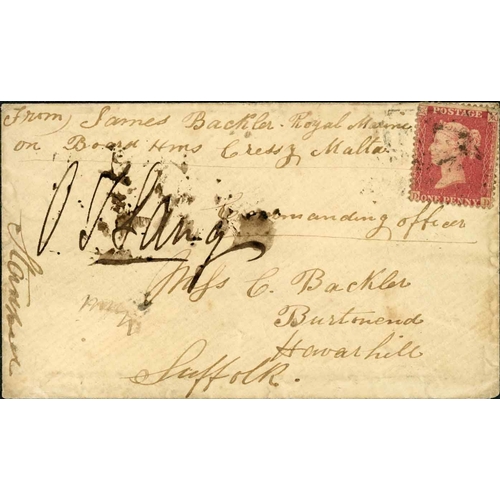 From James Backler Royal Marine
on Board Hms Cressy Malta
Commanding officer
Miss C. Backler
Burtonend
Havarhill
Suffolk.
POSTAGE
ONE PENNY